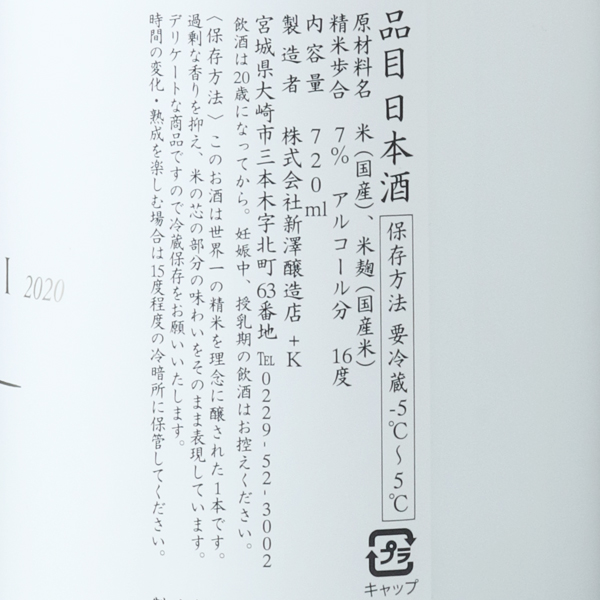 品目 日本酒
保存方法 要冷蔵 -5℃〜5℃
原材料名 米(国産)、米麹(国産米)
精米歩合 7% アルコール分 16度
内容量 720ml
製造者 株式会社新澤醸造店 +K
宮城県大崎市三本木字北町63番地 ℡0229-52-3002
飲酒は20歳になってから。妊娠中、授乳期の飲酒はお控えください。
〈保存方法〉このお酒は世界一の精米を理念に醸された1本です。
過剰な香りを抑え、米の芯の部分の味わいをそのまま表現しています。
デリケートな商品ですので冷蔵保存をお願いいたします。
時間の変化・熟成を楽しむ場合は15度程度の冷暗所に保管してください。
プラ
キャップ
2020